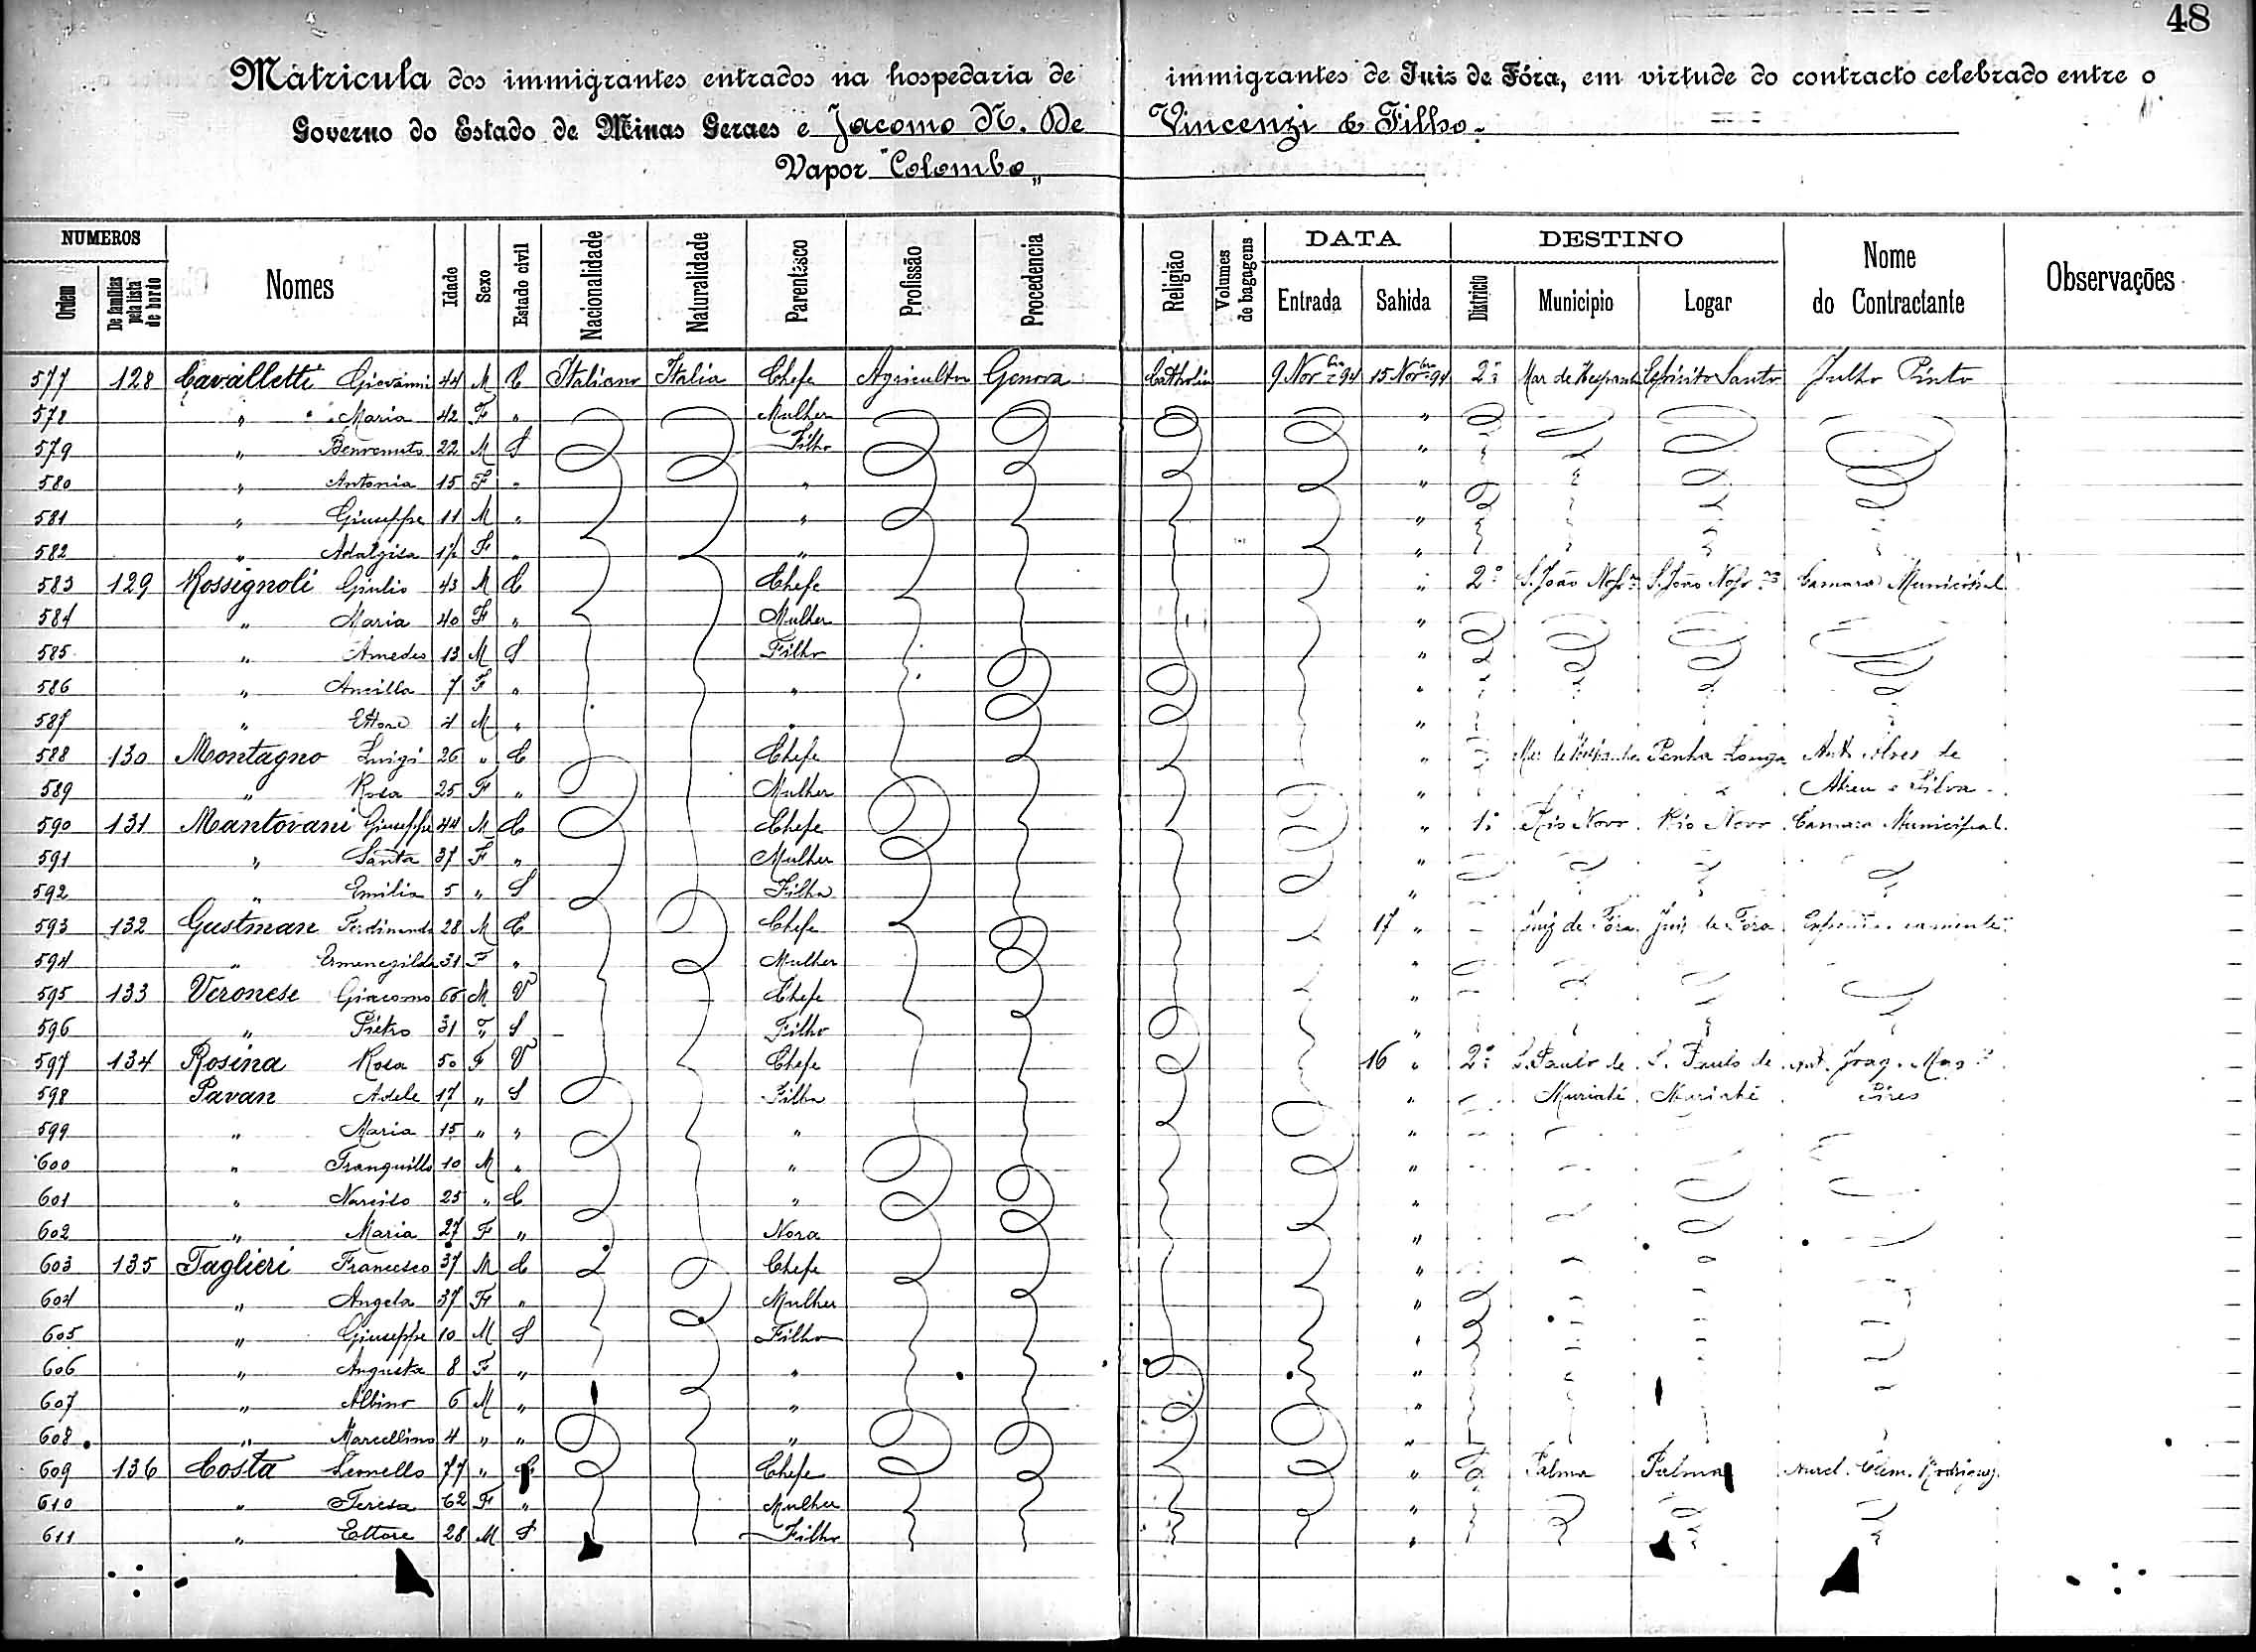 48
Matricula dos immigrantes entrados na hospedaria de immigrantes de Juiz de Fóra, em virtude do contracto celebrado entre o
Governo do Estado de Minas Geraes e Jacomo N. De Vincenzi & Filho.
Vapor "Colombo"
NUMEROS DATA DESTINO
Ordem De familias pela lista de bordo Nomes Idade Sexo Estado civil Nacionalidade Naturalidade Parentesco Profissão Procedencia Religião Volumes de bagagens Entrada Sahida Districto Municipio Logar Nome do Contractante Observações
577 128 Cavalletti Giovanni 44 M C Italiano Italia Chefe Agricultor Genova Catholica 9 Nobro 94 15 Nobro 94 2º Mar de Hespanha Espirito Santo Julho Pinto
578 " Maria 42 F " Mulher "
579 " Benvenuto 22 M S Filho "
580 " Antonia 15 F " " "
581 " Giuseppe 11 M " " "
582 " Adalgisa F " " "
583 129 Rossignoli Giulio 43 M C Chefe " 2º S. João Nepno S. João Nepno Camara Municipal
584 " Maria 40 F " Mulher "
585 " Amedeo 13 M S Filho "
586 " Ancilla 7 F " " "
587 " Ettore 4 M " " "
588 130 Montagno Luigi 26 " C Chefe " Mar de Hespanha Penha Longa Ant. Alves de
589 " Rosa 25 F " Mulher " Abreu e Silva
590 131 Mantovani Giuseppe 44 M C Chefe " 1º Rio Novo Rio Novo Camara Municipal
591 " Santa 37 F " Mulher "
592 " Emilia 5 " S Filha "
593 132 Gustman Ferdinando 28 M C Chefe 17 " Juiz de Fóra Juiz de Fóra
594 " Ermenegilda 31 F " Mulher "
595 133 Veronese Giacomo 66 M V Chefe "
596 " Pietro 31 " S Filho "
597 134 Rosina Rosa 50 F V Chefe 16 " 2º S. Paulo de S. Paulo de Ant. Joaq.
598 Pavan Adele 17 " S Filha " Muriahé Muriahé Pires
599 " Maria 15 " " " "
600 " Tranquillo 10 M " " "
601 " Narciso 25 " C " "
602 " Maria 27 F " Nora "
603 135 Taglieri Francesco 37 M C Chefe "
604 " Angela 37 F " Mulher "
605 " Giuseppe 10 M S Filho "
606 " Augusta 8 F " " "
607 " Albino 6 M " " "
608 " Marcellino 4 " " " "
609 136 Costa Leonello 77 " C Chefe " Palma Palma Aurel. Clem. Rodrigues
610 " Teresa 62 F " Mulher "
611 " Ettore 28 M S Filho "